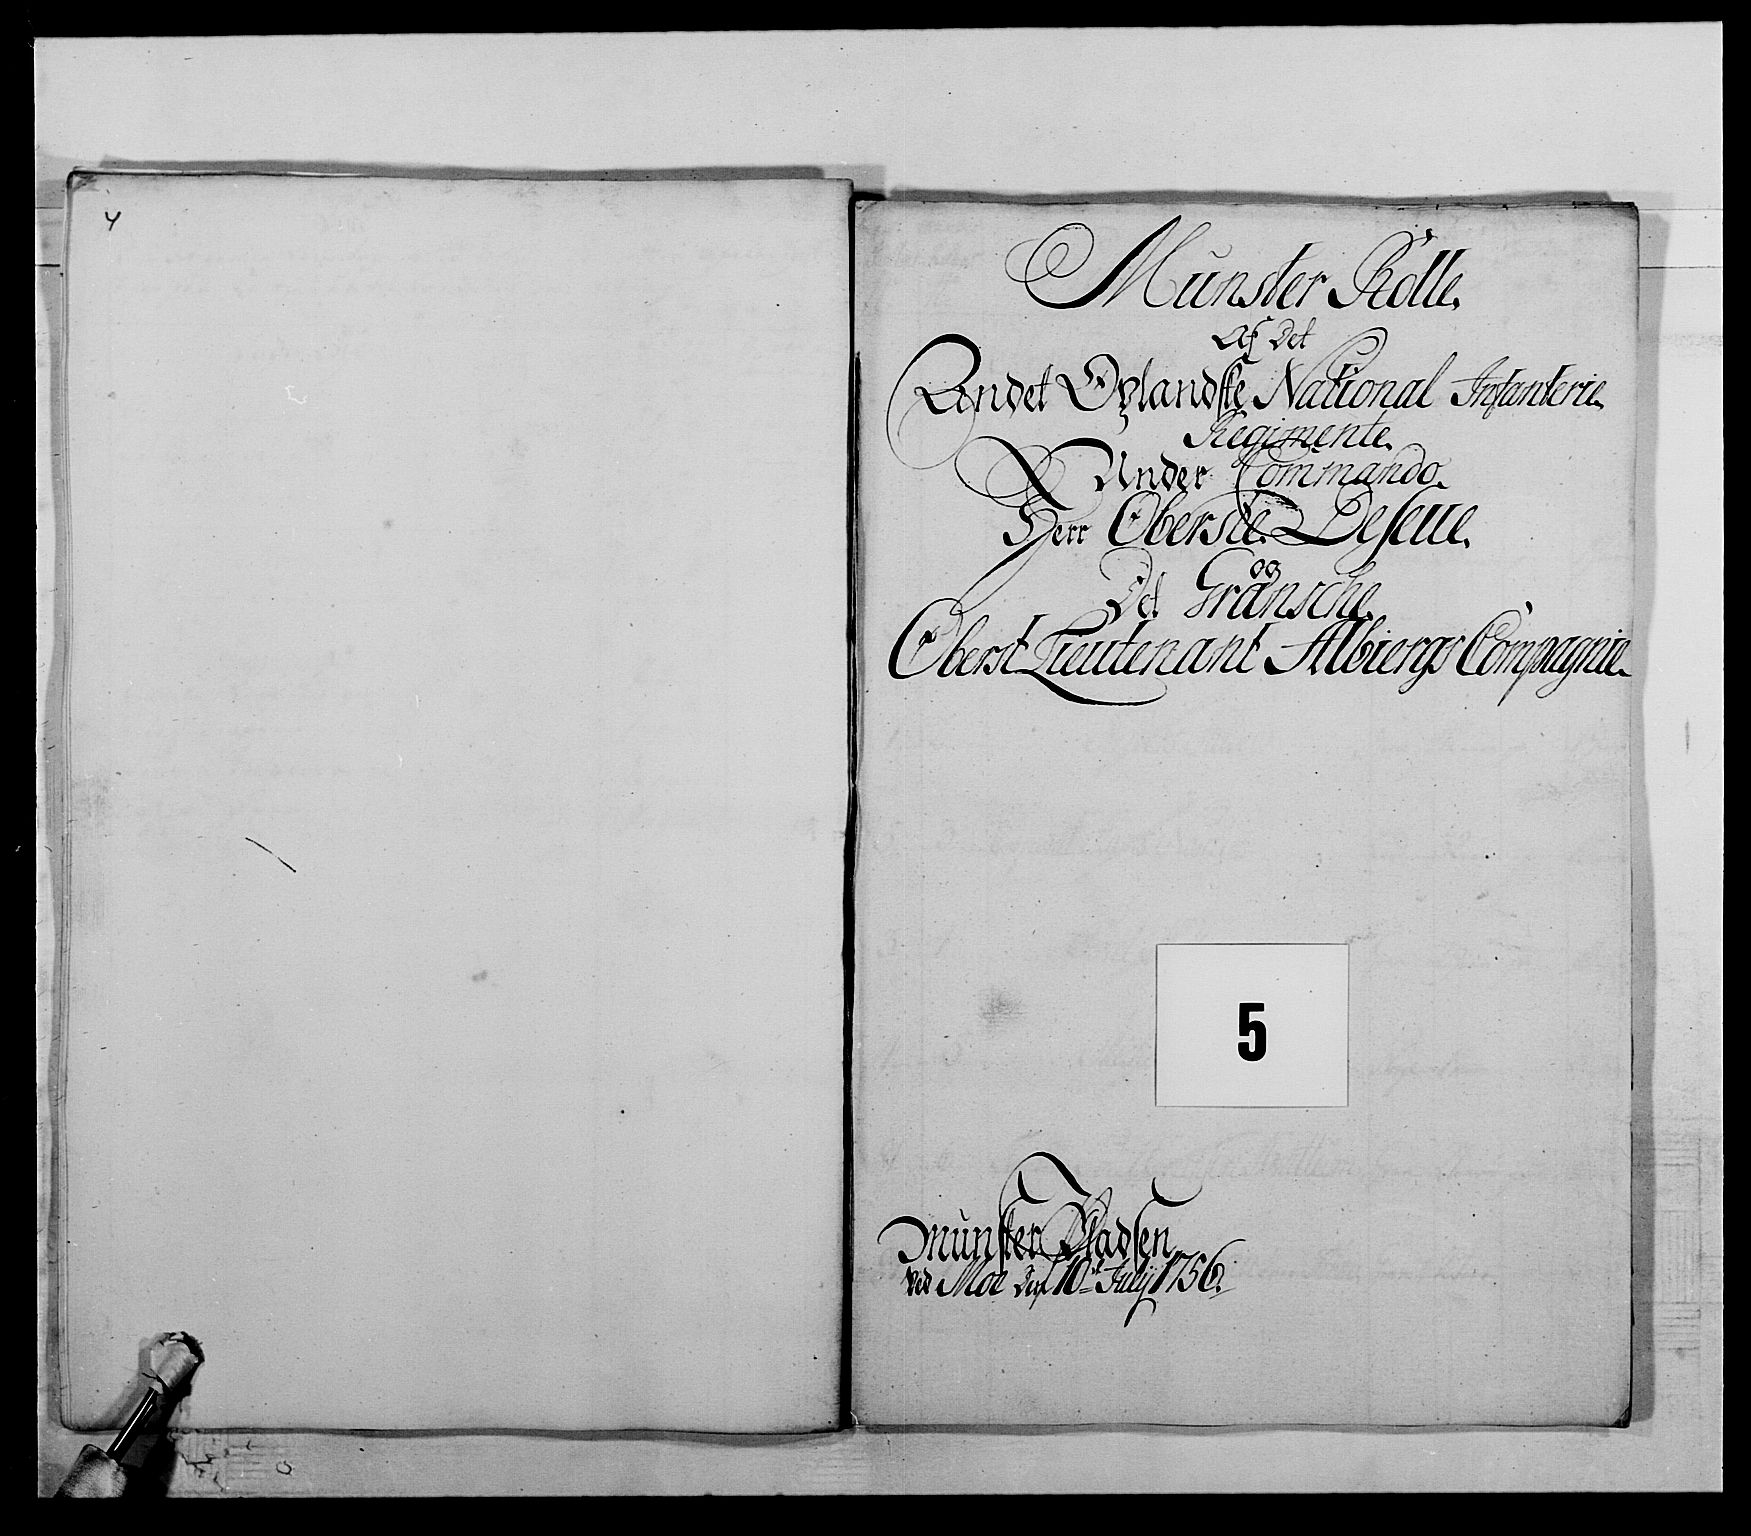 4
Munster Rolle.
Af Det
Andet Oplandske National Infanterie
Regimente.
Under Commando.
Herr Oberste Deseue.
Det Gránsche.
Oberst Lieutenant Albiergs Compagnie.
5
Munster Pladsen
ved Moe den 10de July 1756.